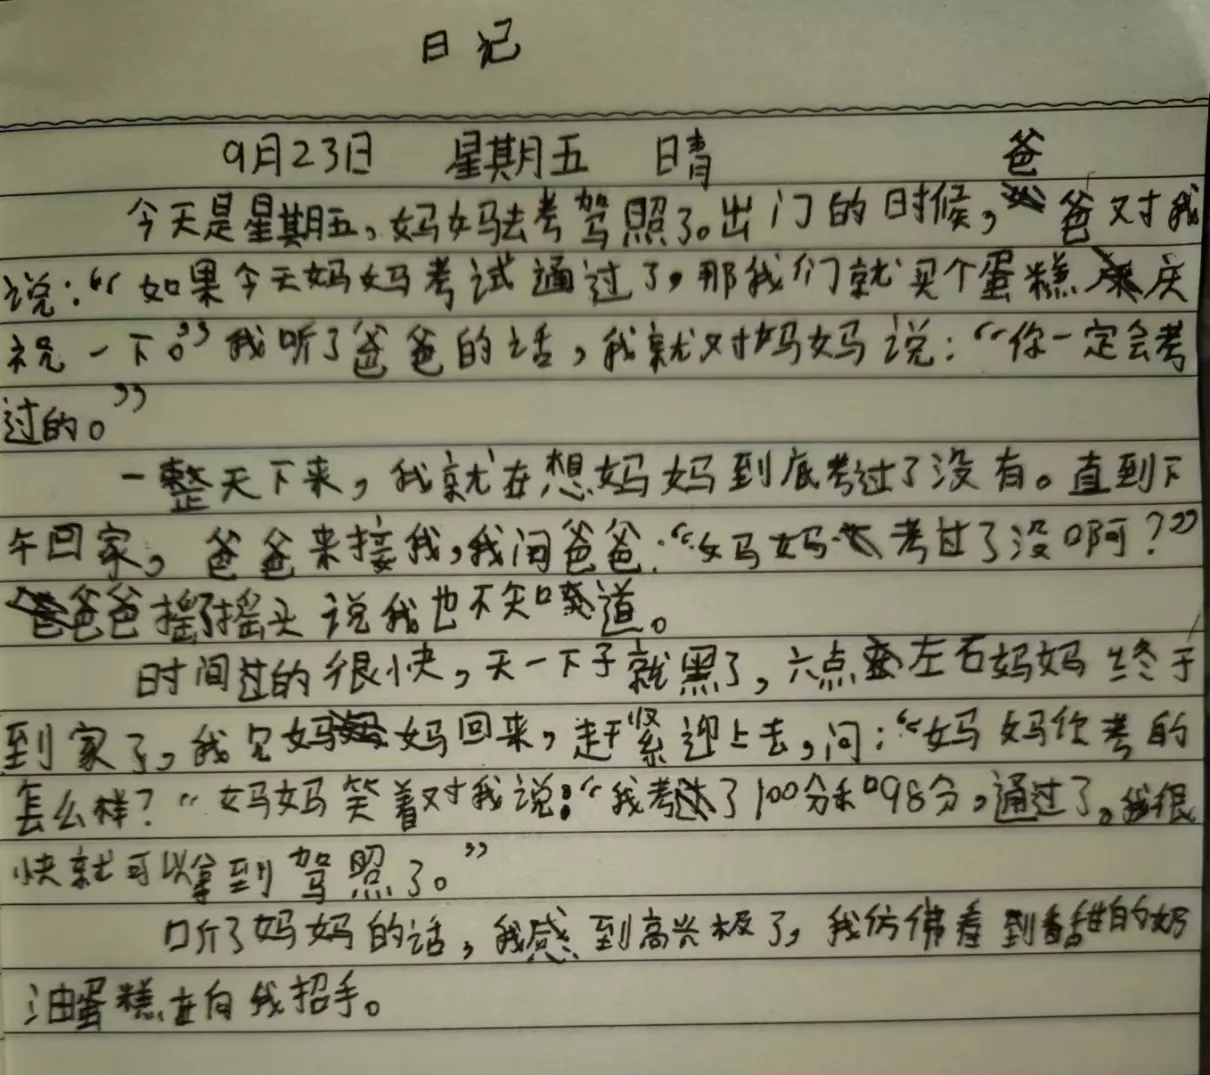 日记
9月23日 星期五 晴
今天是星期五，妈妈去考驾照了。出门的时候，爸爸对我
说：“如果今天妈妈考试通过了，那我们就买个蛋糕庆
祝一下。”我听了爸爸的话，我就对妈妈说：“你一定会考
过的。”
一整天下来，我就在想妈妈到底考过了没有。直到下
午回家，爸爸来接我，我问爸爸：“妈妈考过了没啊？”
爸爸摇了摇头说我也不知道。
时间过的很快，天一下子就黑了，六点左右妈妈终于
到家了，我见妈妈回来，赶紧迎上去，问：“妈妈你考的
怎么样？“妈妈笑着对我说：“我考了100分和98分，通过了，我很
快就可以拿到驾照了。”
听了妈妈的话，我感到高兴极了，我仿佛看到香甜的奶
油蛋糕在向我招手。